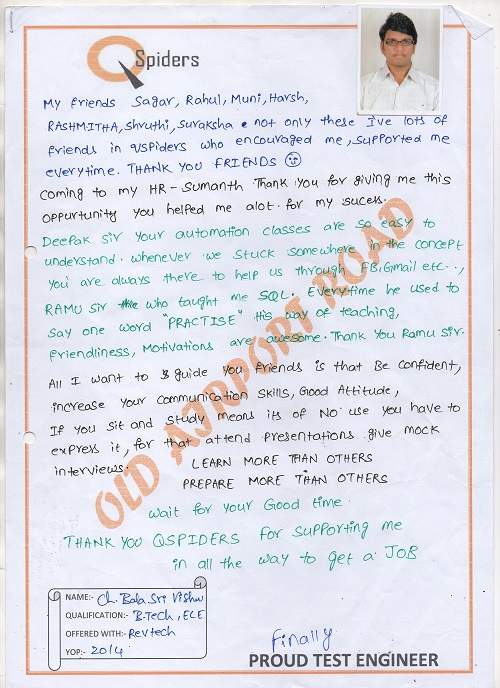 QSpiders
My friends Sagar, Rahul, Muni, Harsh,
RASHMITHA, Shruthi, Suraksha . not only these I've lots of
friends in QSPiders who encouraged me, supported me
everytime. THANK YOU FRIENDS
coming to my HR - Sumanth Thank you for giving me this
oppurtunity you helped me alot for my sucess.
Deepak sir your automation classes are so easy to
understand. whenever we stuck somewhere in the concept
you are always there to help us through FB, Gmail etc..,
RAMU sir who taught me SQL. Everytime he used to
say one word "PRACTISE" His way of teaching,
friendliness, Motivations are awesome. Thank you Ramu sir.
All I want to guide you friends is that Be confident,
increase your communication skills, Good Attitude,
If you sit and study means its of NO use you have to
express it, for that attend presentations give mock
interviews.
LEARN MORE THAN OTHERS
PREPARE MORE THAN OTHERS
wait for your Good time.
THANK YOU QSPIDERS for supporting me
in all the way to get a JOB
OLD AIRPORT ROAD
NAME:- Ch. Bala Sri Vishnu
QUALIFICATION:- B.Tech, ECE
OFFERED WITH:- Revtech
YOP:- 2014
Finally
PROUD TEST ENGINEER